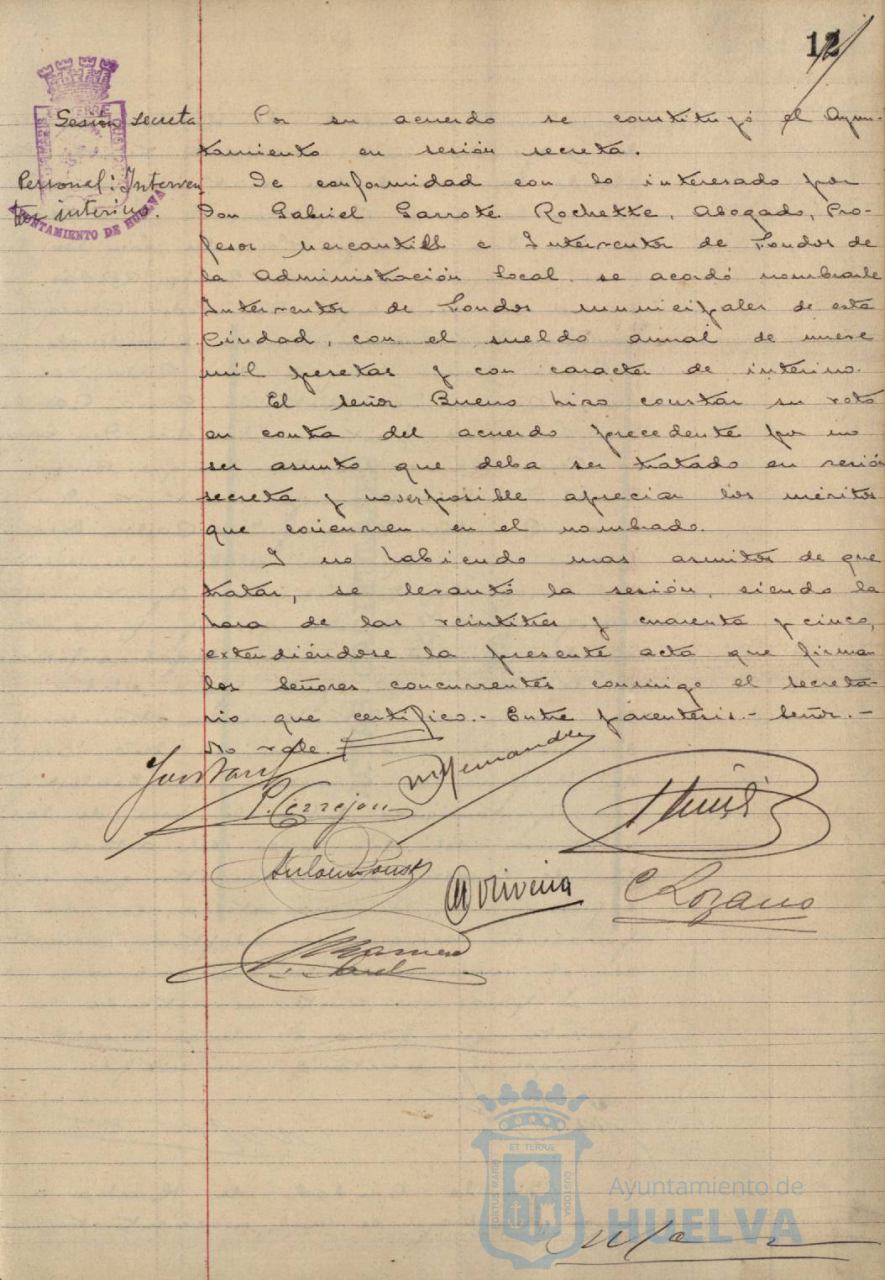 12
Sesión secreta
Personal: Interven
tor interino.
Por su acuerdo se constituyó el Ayun-
tamiento en sesión secreta.
De conformidad con lo interesado por
Don Gabriel Garrote Rochette, Abogado, Pro-
fesor Mercantil e Interventor de Fondos de
la Administración Local se acordó nombrarle
Interventor de Fondos municipales de esta
Ciudad, con el sueldo anual de nueve
mil pesetas y con caracter de interino.
El señor Bueno hizo constar su voto
en contra del acuerdo precedente por no
ser asunto que deba ser tratado en sesión
secreta y no ser posible apreciar los méritos
que concurren en el nombrado.
Y no habiendo mas asuntos de que
tratar, se levantó la sesión, siendo la
hora de las veintitres y cuarenta y cinco,
extendiéndose la presente acta que firman
los Señores concurrentes conmigo el secreta-
rio que certifico.- Entre parentesis.- Señor.-
No vale.-
P. Cerrejon
M Hernandez
Oliveira
C Lozano
AYUNTAMIENTO DE HUELVA
ET TERRE
PORTUS MARIS
CUSTODIA
Ayuntamiento de
HUELVA